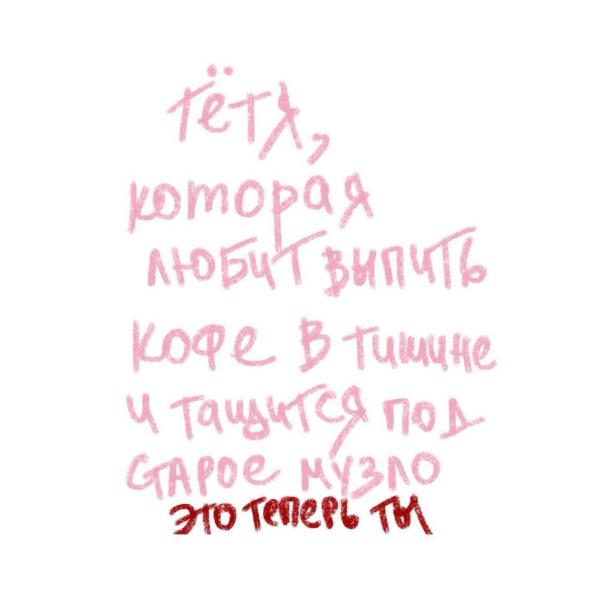 тётя,
которая
любит выпить
кофе в тишине
и тащится под
старое музло
это теперь ты